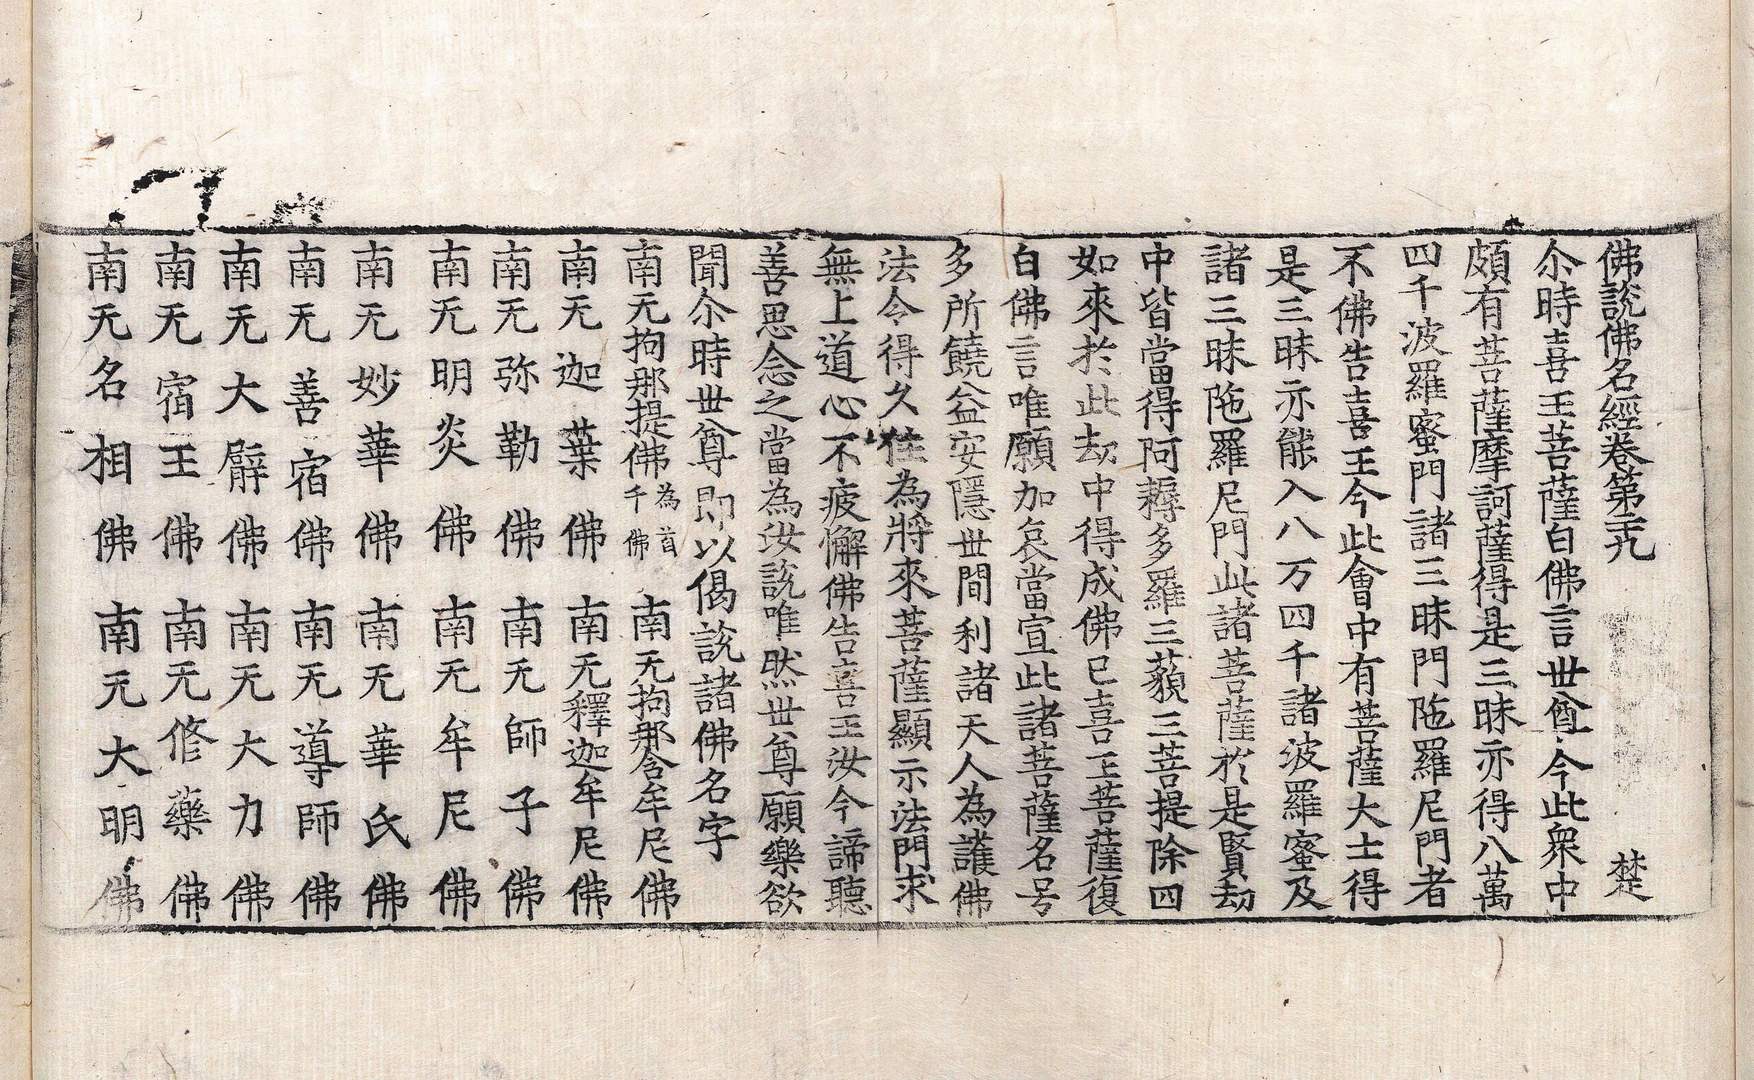 佛說佛名經卷第二十九 楚
尒時喜王菩薩白佛言世尊今此衆中
頗有菩薩摩訶薩得是三昧亦得八萬
四千波羅蜜門諸三昧門陁羅尼門者
不佛告喜王今此會中有菩薩大士得
是三昧亦能入八万四千諸波羅蜜及
諸三昧陁羅尼門此諸菩薩於是賢劫
中皆當得阿耨多羅三藐三菩提除四
如來於此劫中得成佛已喜王菩薩復
白佛言唯願加哀當宣此諸菩薩名号
多所饒益安隱世間利諸天人為護佛
法令得久住為將來菩薩顯示法門求
無上道心不疲懈佛告喜王汝今諦聽
善思念之當為汝說唯然世尊願樂欲
聞尒時世尊即以偈說諸佛名字
南无拘那提佛為首千佛 南无拘那含牟尼佛
南无迦葉佛 南无釋迦牟尼佛
南无弥勒佛 南无師子佛
南无明炎佛 南无牟尼佛
南无妙華佛 南无華氏佛
南无善宿佛 南无導師佛
南无大臂佛 南无大力佛
南无宿王佛 南无修藥佛
南无名相佛 南无大明佛